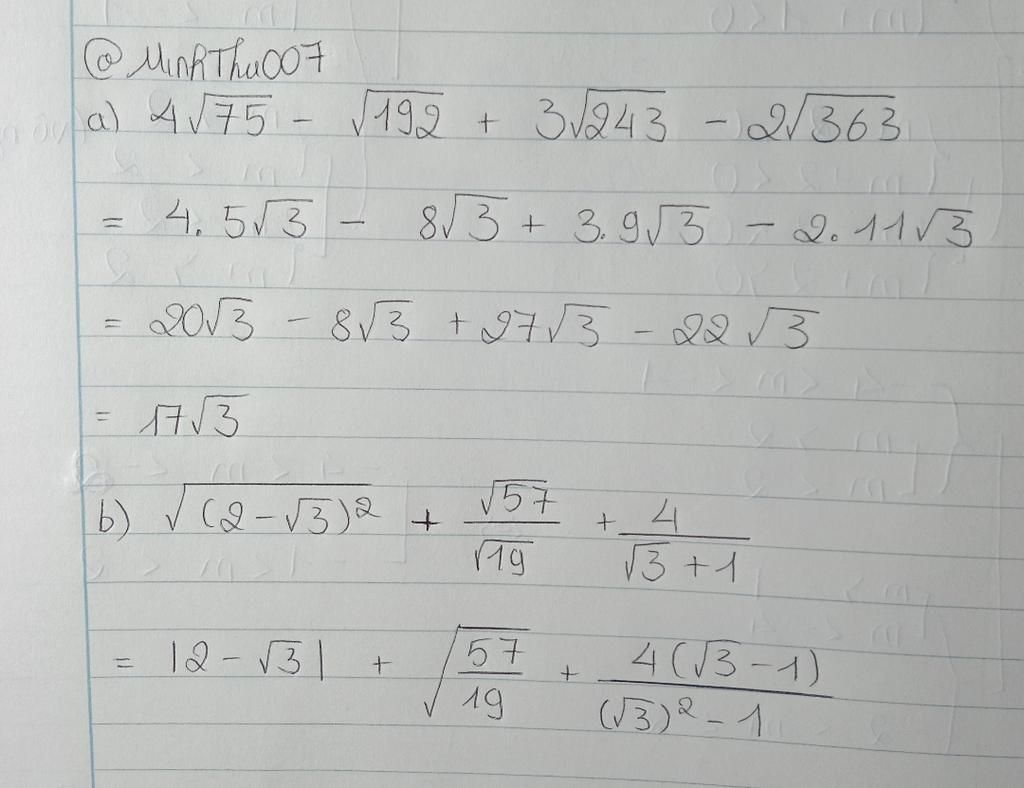 @MinhThu007
a) 4√75 - √192 + 3√243 - 2√363
= 4.5√3 - 8√3 + 3.9√3 - 2.11√3
= 20√3 - 8√3 + 27√3 - 22√3
= 17√3
b) √((2-√3)²) + √57/√19 + 4/(√3+1)
= |2-√3| + √(57/19) + 4(√3-1)/((√3)²-1)